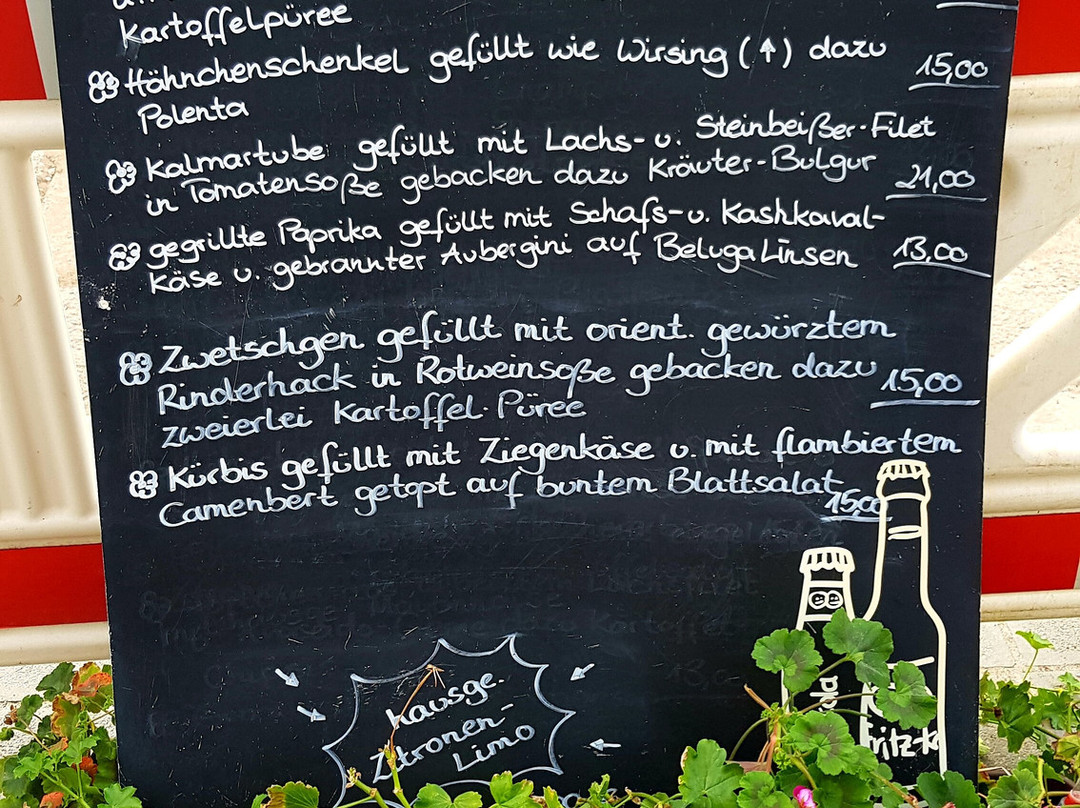 Kartoffelpüree
Hähnchenschenkel gefüllt wie Wirsing (↑) dazu 15,00
Polenta
Kalmartube gefüllt mit Lachs- u. Steinbeißer-Filet
in Tomatensoße gebacken dazu Kräuter-Bulgur 21,00
gegrillte Paprika gefüllt mit Schafs- u. Kashkaval-
Käse u. gebrannter Aubergini auf Beluga Linsen 13,00
Zwetschgen gefüllt mit orient. gewürztem
Rinderhack in Rotweinsoße gebacken dazu 15,00
zweierlei Kartoffel-Püree
Kürbis gefüllt mit Ziegenkäse u. mit flambiertem
Camenbert getopt auf buntem Blattsalat 15,00
Hausge.
Zitronen-
Limo